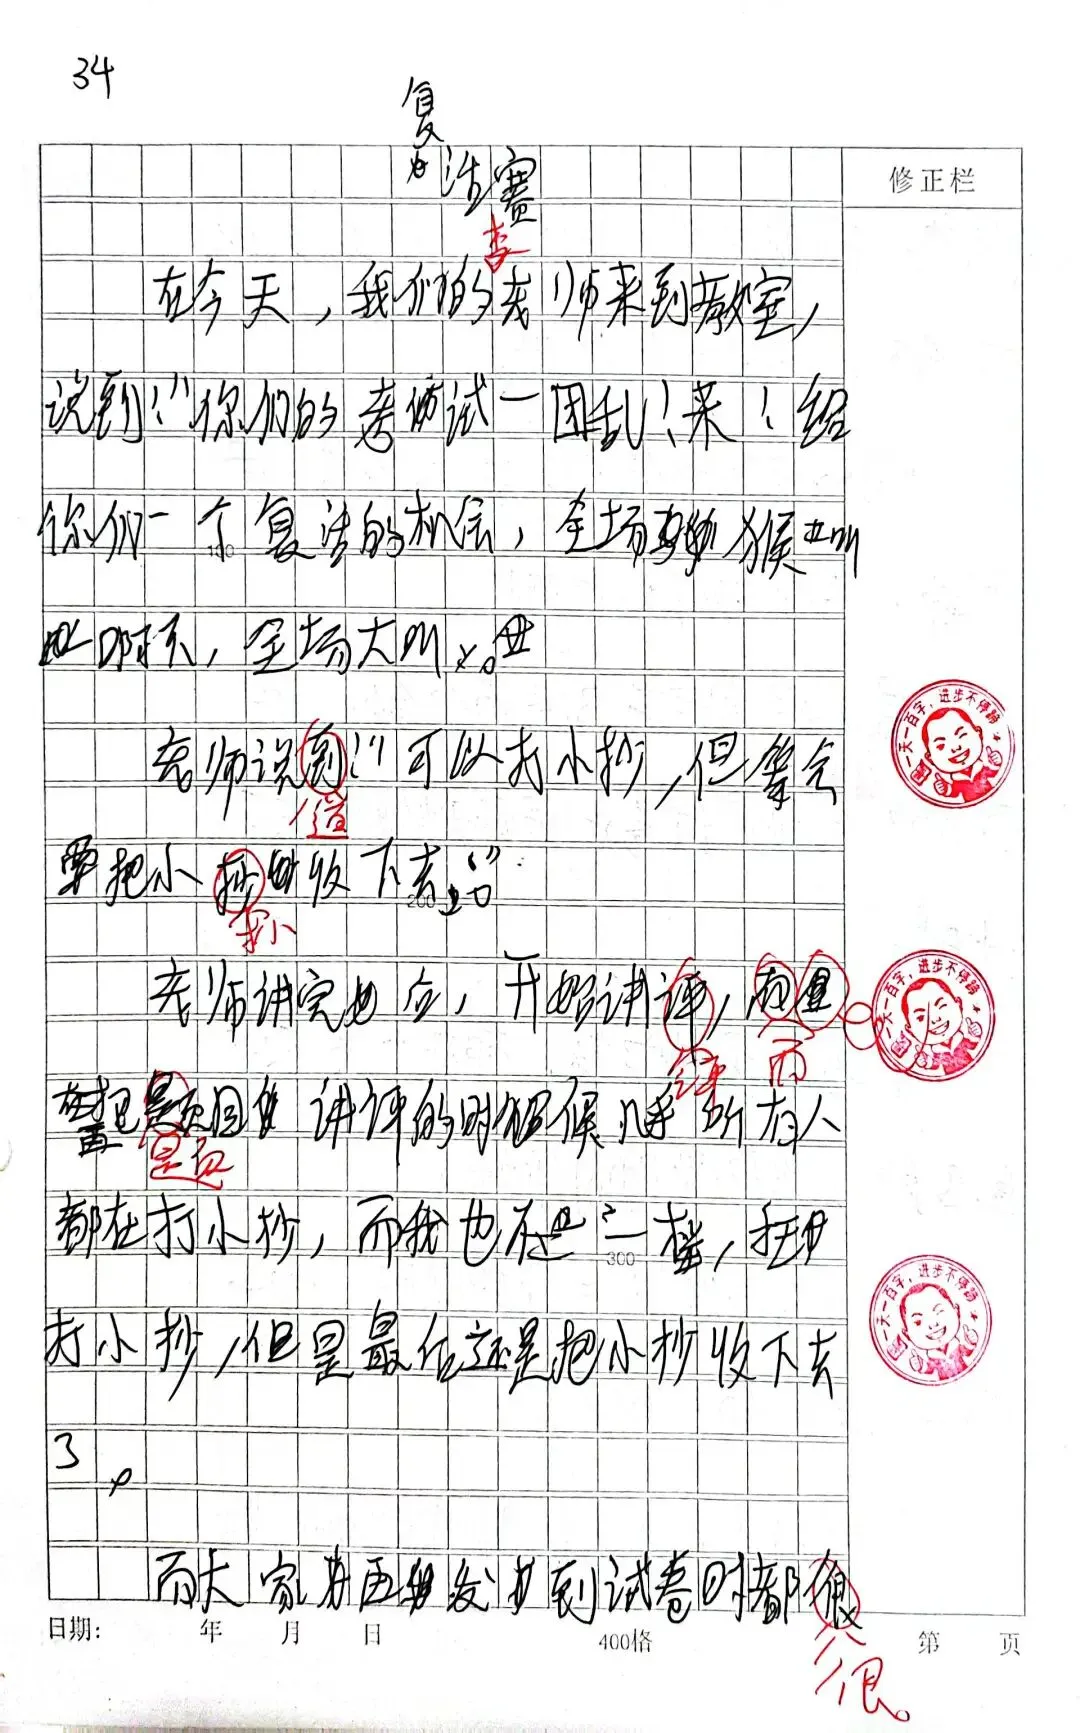 34
复
活赛
修正栏
李
在今天，我们的老师来到教室，
说到：“你们的考试一团乱！来！给
你们一个复活的机会，全场猴叫
全场大叫。
老师说到：“可以打小抄，但等会
道
要把小抄收下去。”
200
抄
老师讲完后，开始讲评，而
评 而
在把题目讲评的时候几乎所有人
题
都在打小抄，而我也不一样，
300
打小抄，但是最后还是把小抄收下去
了。
而大家再发到试卷时都很
日期： 年 月 日 400格 第 页
很。
一天一百字，进步不停蹄
一天一百字，进步不停蹄
一天一百字，进步不停蹄